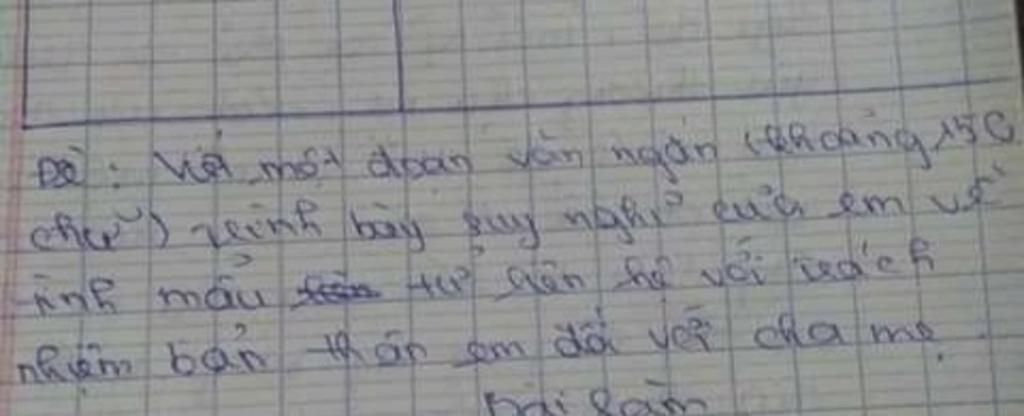 Đề: Viết một đoạn văn ngắn (khoảng 150
chữ) trình bày suy nghĩ của em về
tình mẫu tử liên hệ với trách
nhiệm bản thân em đối với cha mẹ.
Bài làm